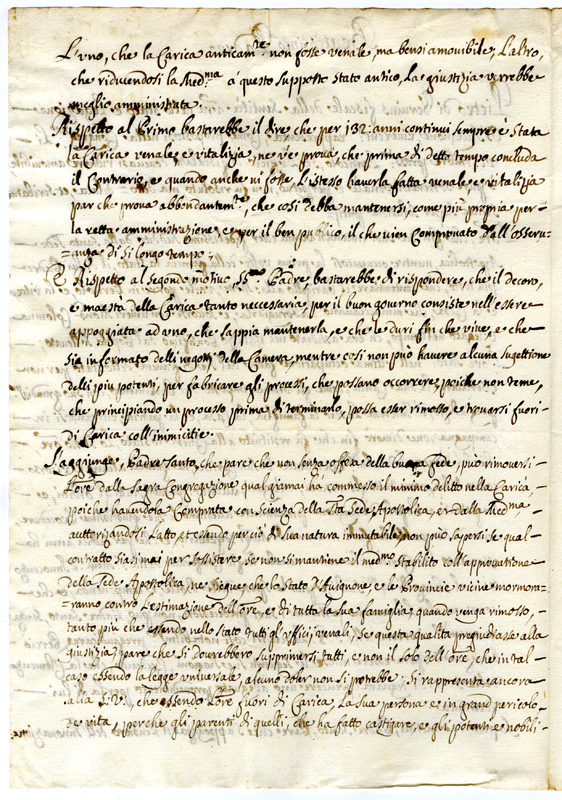 L'uno, che la Carica anticam.te non fosse venale, ma bensi amouibile, L'altro,
che riducendosi la med.ma a questo supposto stato antico, La giustizia verrebbe
meglio amministrata.
Rispetto al Primo bastarebbe il dire che per 132: anni continui sempre è Stata
la Carica venale, e vitalizia, ne v'è prova, che prima di detto tempo concluda
il Contrario, e quando anche vi fosse L'istesso hauerla fatta venale e vitalizia
par che prova abbondantem.te, che cosi debba mantenersi, come più propria per-
la retta amministrazione, e per il ben publico, il che vien Comprovato dall'osseru-
=anza di si longo tempo;
E Rispetto al segondo motivo, SS.mo Padre, bastarebbe di rispondere, che il decoro,
e maestà della Carica tanto neccessaria, per il buon governo consiste nell'essere
appoggiata ad uno, che sappia mantenerla, e che le duri fin che vive, e che
sia informato delli negotij della Camera, mentre cosi non può hauere alcuna sugettione
delli più potenti, per fabricare gli processi, che possano occorrere, poiche non teme,
che principiando un processo prima di terminarlo, possa esser rimosso, e trovarsi fuori-
di Carica coll'inimicitie.
S'aggiunge, Padre Santo, che pare che non senza offesa della buona fede, può rimoversi-
L'Ore dalla Sagra Congregazione qual giamai ha commesso il minimo delitto nella Carica-
poiche havendola Comprata con scienza della S.ta Sede Apostolica, e dalla Med.ma
auttorizandosi L'atto, et essendo perciò di sua natura immutabile non può sapersi se qual-
contratto siasi mai per sossistere, se non si mantiene il med.mo stabilito coll'approvatione
della Sede Apostolica, ne segue che lo Stato d'Avignone, e le Provincie vicine mormora-
=ranno contro L'estimazione dell'Ore, e di tutta la sua famiglia, quando venga rimosso,
tanto più che essendo nello stato tutti gl'ufficij venali, se questa qualità pregiudicasse alla
giustizia, pare che si dourebbero supprimersi tutti, e non il solo dell'Ore, che in tal-
caso essendo la legge universale, alcuno doler non si potrebbe; Si rappresenta ancora
alla S.V., che essendo L'Ore fuori di Carica, La sua persona è in grand pericolo-
de vita, perche gli parenti di quelli, che ha fatto castigare, e gli potenti e nobili-